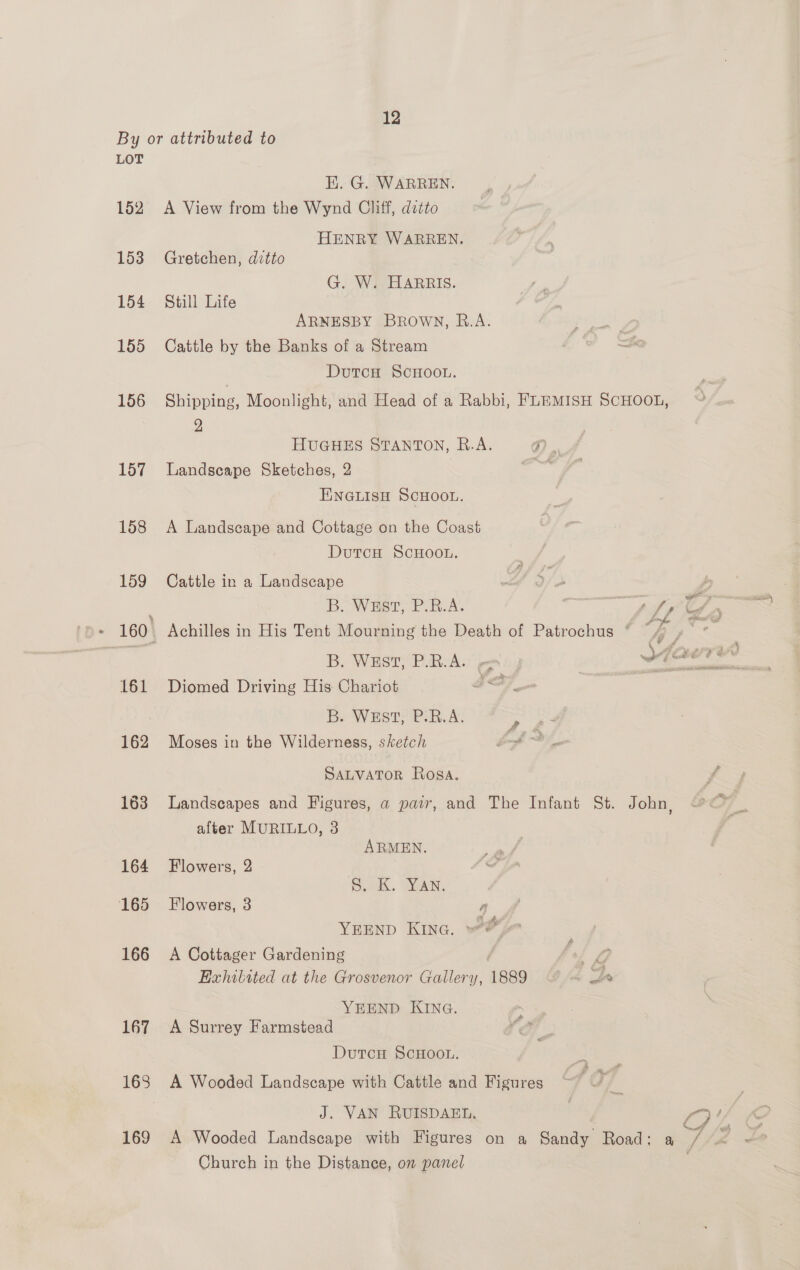 12
By or attributed to
LOT
E. G. WARREN.
152 A View from the Wynd Cliff, ditto
HENRY WARREN.
153 Gretchen, ditto
G. W. HARRIS.
154 Still Life
ARNESBY BROWN, R.A.
155 Cattle by the Banks of a Stream
DUTCH SCHOOL.
156 Shipping, Moonlight, and Head of a Rabbi, FLEMISH SCHOOL,
2
HUGHES STANTON, R.A.
157 Landscape Sketches, 2
ENGLISH SCHOOL.
158 A Landscape and Cottage on the Coast
DUTCH SCHOOL.
159 Cattle in a Landscape
B. WEST, P.R.A.
160 Achilles in His Tent Mourning the Death of Patrochus
B. WEST, P.R.A.
161 Diomed Driving His Chariot
B. WEST, P.R.A.
162 Moses in the Wilderness, sketch
SALVATOR ROSA.
163 Landscapes and Figures, a pair, and The Infant St. John,
after MURILLO, 3
ARMEN.
164 Flowers, 2
S. K. YAN.
165 Flowers, 3
YEEND KING.
166 A Cottager Gardening
Exhibited at the Grosvenor Gallery, 1889
YEEND KING.
167 A Surrey Farmstead
DUTCH SCHOOL.
168 A Wooded Landscape with Cattle and Figures
J. VAN RUISDAEL.
169 A Wooded Landscape with Figures on a Sandy Road; a
Church in the Distance, on panel